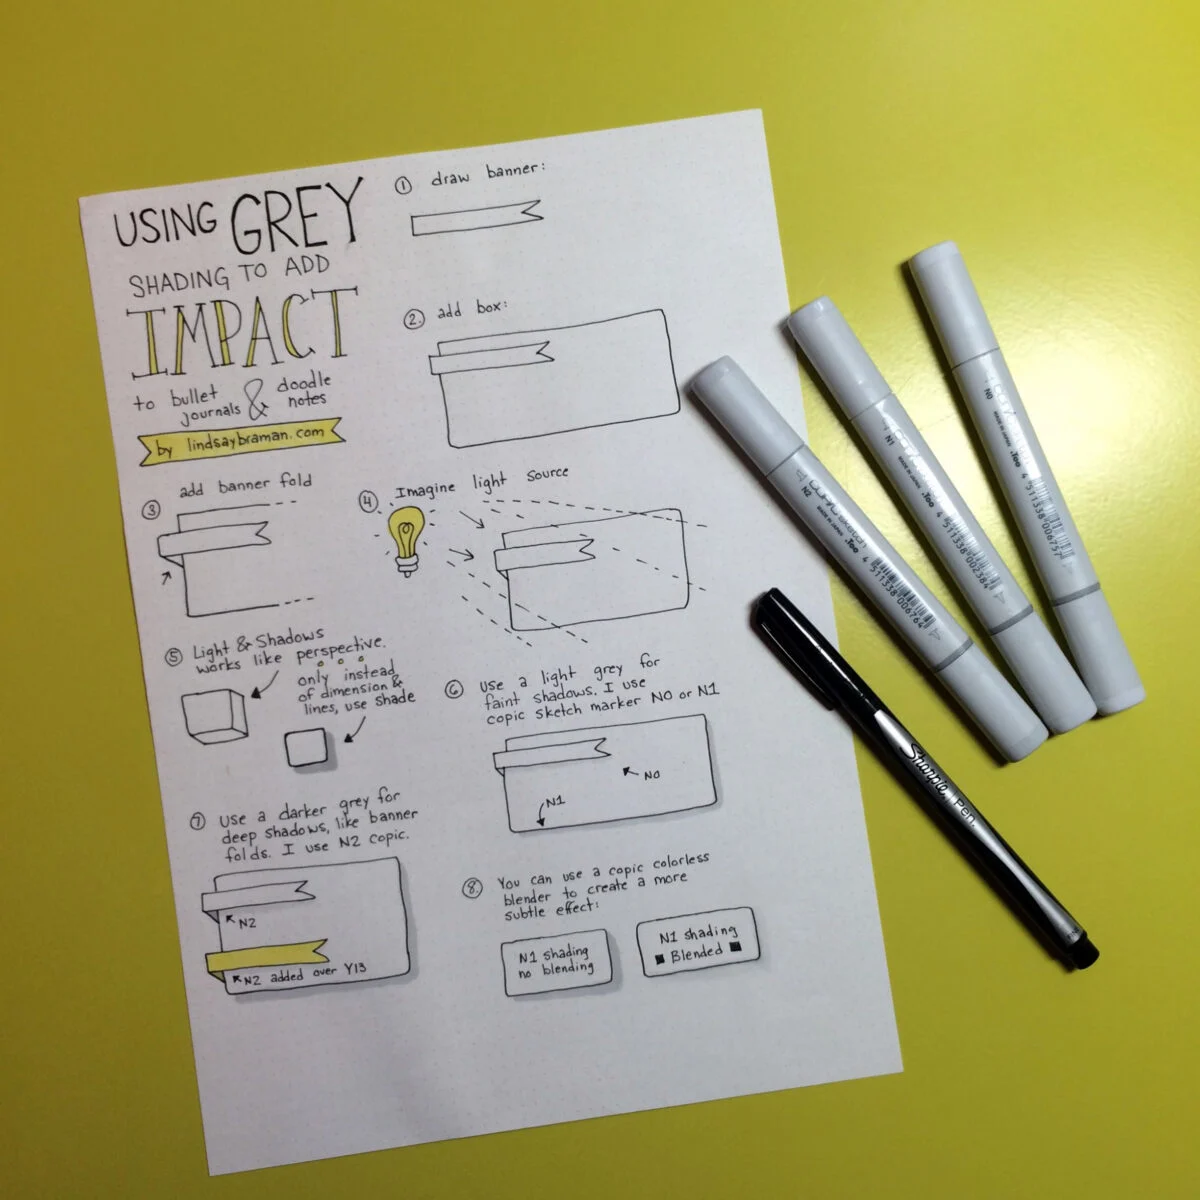 USING GREY
SHADING TO ADD
IMPACT
to bullet
journals & doodle
notes
by lindsaybraman.com
① draw banner:
②. add box:
③ add banner fold
④ Imagine light source
⑤ Light & Shadows
works like perspective.
only instead
of dimension &
lines, use shade
⑥ Use a light grey for
faint shadows. I use
copic sketch marker N0 or N1
N0
N1
⑦ Use a darker grey for
deep shadows, like banner
folds. I use N2 copic.
N2
N2 added over Y13
⑧. You can use a copic colorless
blender to create a more
subtle effect:
N1 shading
no blending
N1 shading
Blended
N2
MADE IN JAPAN
.Too
4 511338 006764
N1
MADE IN JAPAN
.Too
4 511338 002384
N0
MADE IN JAPAN
.Too
4 511338 006757
Sharpie Pen.